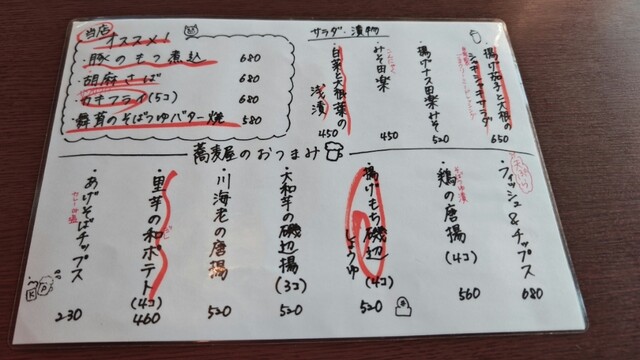 当店
オススメ!
・豚のもつ煮込 680
・胡麻さば 680
・カキフライ(5コ) 680
・舞茸のそばつゆバター焼 580
サラダ・漬物
・揚げ茄子と大根の
シャキシャキサラダ
650
・揚げナス田楽みそ
520
・みそ田楽
450
・白菜と大根葉の
浅漬
450
蕎麦屋のおつまみ
・フィッシュ&チップス
680
・鶏の唐揚
(4コ)
560
・揚げもち磯辺
しょうゆ
(4コ)
520
・大和芋の磯辺揚
(3コ)
520
・川海老の唐揚
520
・里芋の和ポテト
(4コ)
460
・あげそばチップス
230